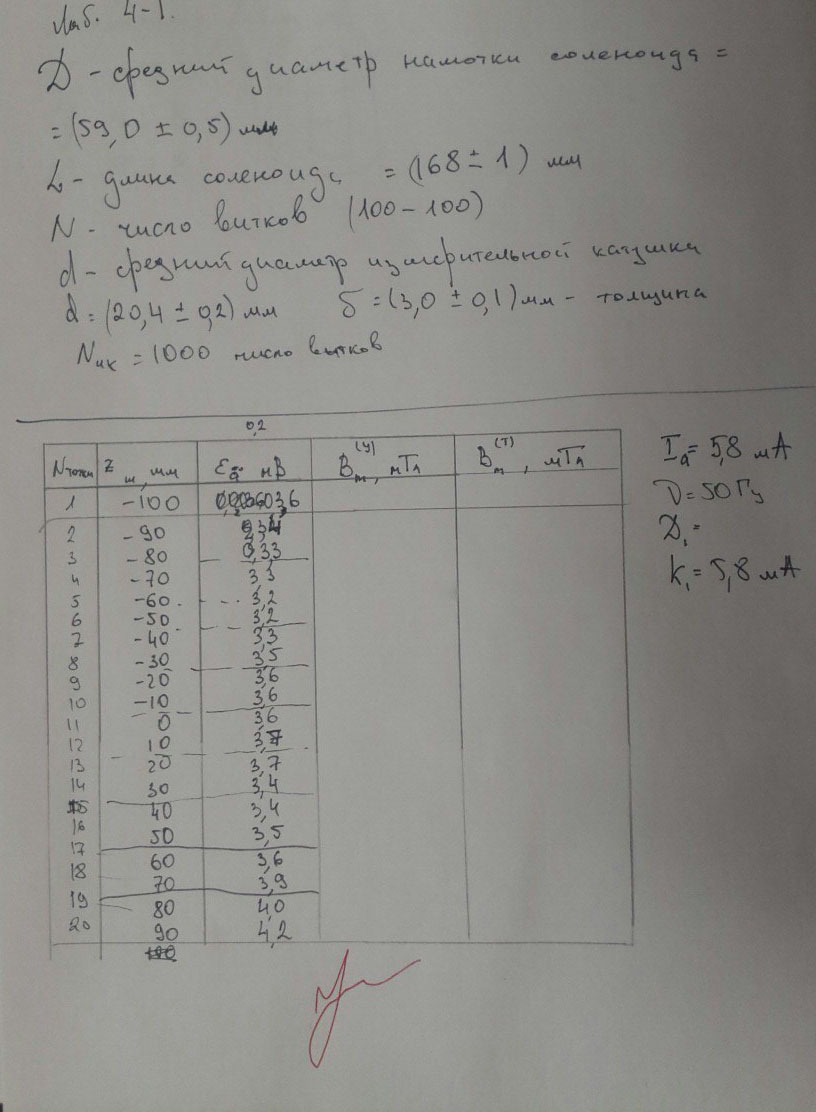 Лаб. 4-1.
D - средний диаметр намотки соленоида =
= (59,0 ± 0,5) мм
L - длина соленоида = (168 ± 1) мм
N - число витков (100 - 100)
d - средний диаметр измерительной катушки
d = (20,4 ± 0,2) мм δ = (3,0 ± 0,1) мм - толщина
Nик = 1000 число витков
0,2
N точки z м, мм , мВ Bm(У), мТл Bm(Т), мТл
1 -100
2 -90
3 -80 3,3
4 -70 3,3
5 -60 3,2
6 -50 3,2
7 -40 3,3
8 -30 3,5
9 -20 3,6
10 -10 3,6
11 0 3,6
12 10 3,7
13 20 3,7
14 30 3,4
15 40 3,4
16 50 3,5
17 60 3,6
18 70 3,9
19 80 4,0
20 90 4,2
Iд = 5,8 мА
ν = 50 Гц
D₁ =
k₁ = 5,8 мА